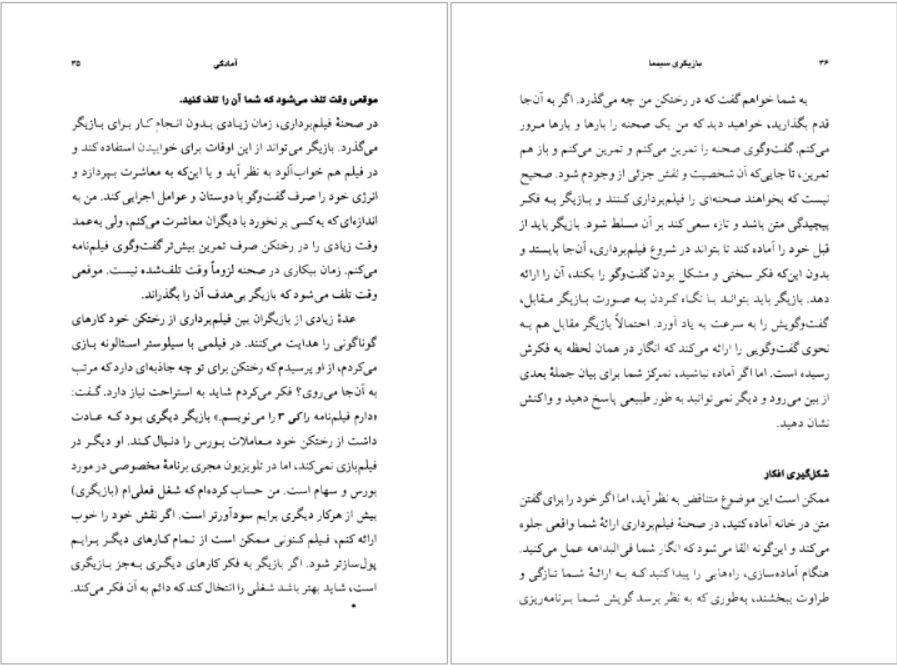 ۳۵
آمادگی
موقعی وقت تلف می‌شود که شما آن را تلف کنید.
در صحنهٔ فیلم‌برداری، زمان زیادی بدون انجام کار برای بازیگر
می‌گذرد. بازیگر می‌تواند از این اوقات برای خوابیدن استفاده کند و
در فیلم هم خواب‌آلود به نظر آید و یا این‌که به معاشرت بپردازد و
انرژی خود را صرف گفت‌وگو با دوستان و عوامل اجرایی کند. من به
اندازه‌ای که به کسی بر نخورد با دیگران معاشرت می‌کنم، ولی به‌عمد
وقت زیادی را در رختکن صرف تمرین بیش‌تر گفت‌وگوی فیلم‌نامه
می‌کنم. زمان بیکاری در صحنه لزوماً وقت تلف‌شده نیست. موقعی
وقت تلف می‌شود که بازیگر بی‌هدف آن را بگذراند.
عدهٔ زیادی از بازیگران بین فیلم‌برداری از رختکن خود کارهای
گوناگونی را هدایت می‌کنند. در فیلمی با سیلوستر استالونه بازی
می‌کردم، از او پرسیدم که رختکن برای تو چه جاذبه‌ای دارد که مرتب
به آن‌جا می‌روی؟ فکر می‌کردم شاید به استراحت نیاز دارد. گفت:
«دارم فیلم‌نامه راکی ۳ را می‌نویسم.» بازیگر دیگری بود که عادت
داشت از رختکن خود معاملات بورس را دنبال کند. او دیگر در
فیلم‌بازی نمی‌کند، اما در تلویزیون مجری برنامهٔ مخصوصی در مورد
بورس و سهام است. من حساب کرده‌ام که شغل فعلی‌ام (بازیگری)
بیش از هرکار دیگری برایم سودآورتر است. اگر نقش خود را خوب
ارائه کنم، فیلم کنونی ممکن است از تمام کارهای دیگر برایم
پول‌سازتر شود. اگر بازیگر به فکر کارهای دیگری به‌جز بازیگری
است، شاید بهتر باشد شغلی را انتخاب کند که دائم به آن فکر می‌کند.
۳۶
بازیگری سینما
به شما خواهم گفت که در رختکن من چه می‌گذرد. اگر به آن‌جا
قدم بگذارید، خواهید دید که من یک صحنه را بارها و بارها مرور
می‌کنم. گفت‌وگوی صحنه را تمرین می‌کنم و تمرین می‌کنم و باز هم
تمرین، تا جایی‌که آن شخصیت و نقش جزئی از وجودم شود. صحیح
نیست که بخواهند صحنه‌ای را فیلم‌برداری کنند و بازیگر به فکر
پیچیدگی متن باشد و تازه سعی کند بر آن مسلط شود. بازیگر باید از
قبل خود را آماده کند تا بتواند در شروع فیلم‌برداری، آن‌جا بایستد و
بدون این‌که فکر سختی و مشکل بودن گفت‌وگو را بکند، آن را ارائه
دهد. بازیگر باید بتواند با نگاه کردن به صورت بازیگر مقابل،
گفت‌وگویش را به سرعت به یاد آورد. احتمالاً بازیگر مقابل هم به
نحوی گفت‌وگویی را ارائه می‌کند که انگار در همان لحظه به فکرش
رسیده است. اما اگر آماده نباشید، تمرکز شما برای بیان جملهٔ بعدی
از بین می‌رود و دیگر نمی‌توانید به طور طبیعی پاسخ دهید و واکنش
نشان دهید.
شکل‌گیری افکار
ممکن است این موضوع متناقض به نظر آید، اما اگر خود را برای گفتن
متن در خانه آماده کنید، در صحنهٔ فیلم‌برداری ارائهٔ شما واقعی جلوه
می‌کند و این‌گونه القا می‌شود که انگار شما فی‌البداهه عمل می‌کنید.
هنگام آماده‌سازی، راه‌هایی را پیدا کنید که به ارائهٔ شما تازگی و
طراوت ببخشند، به‌طوری که به نظر برسد گویش شما برنامه‌ریزی